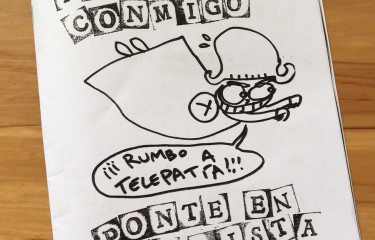 CONMIGO
¡¡¡ RUMBO A
TELEPATÍA!!!
PONTE EN